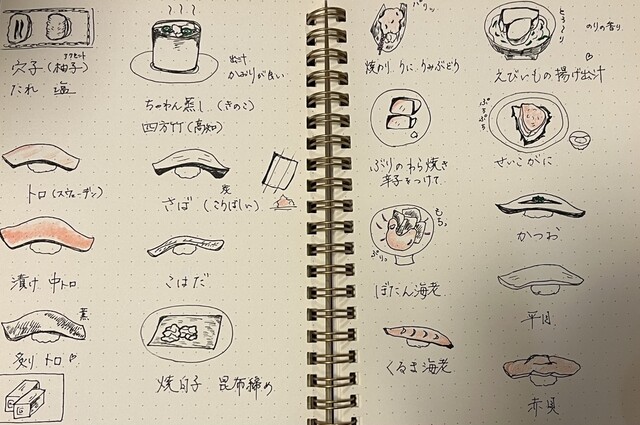 穴子(柚子)
アクセント
たれ 塩
出汁
かおりが良い
ちゃわん蒸し(きのこ)
四方竹(高知)
トロ(スウェーデン)
さば(香ばしい)
炭
漬け 中トロ
こはだ
炙り トロ
焼白子 昆布締め
パリッ
焼のり、うに、うみぶどう
とろ〜り
のりの香り
えびいもの揚げ出汁
ぶりのわら焼き
辛子をつけて
ぷちぷち
せいこがに
もちっ
ぷりっ
ぼたん海老
かつお
くるま海老
平貝
赤貝